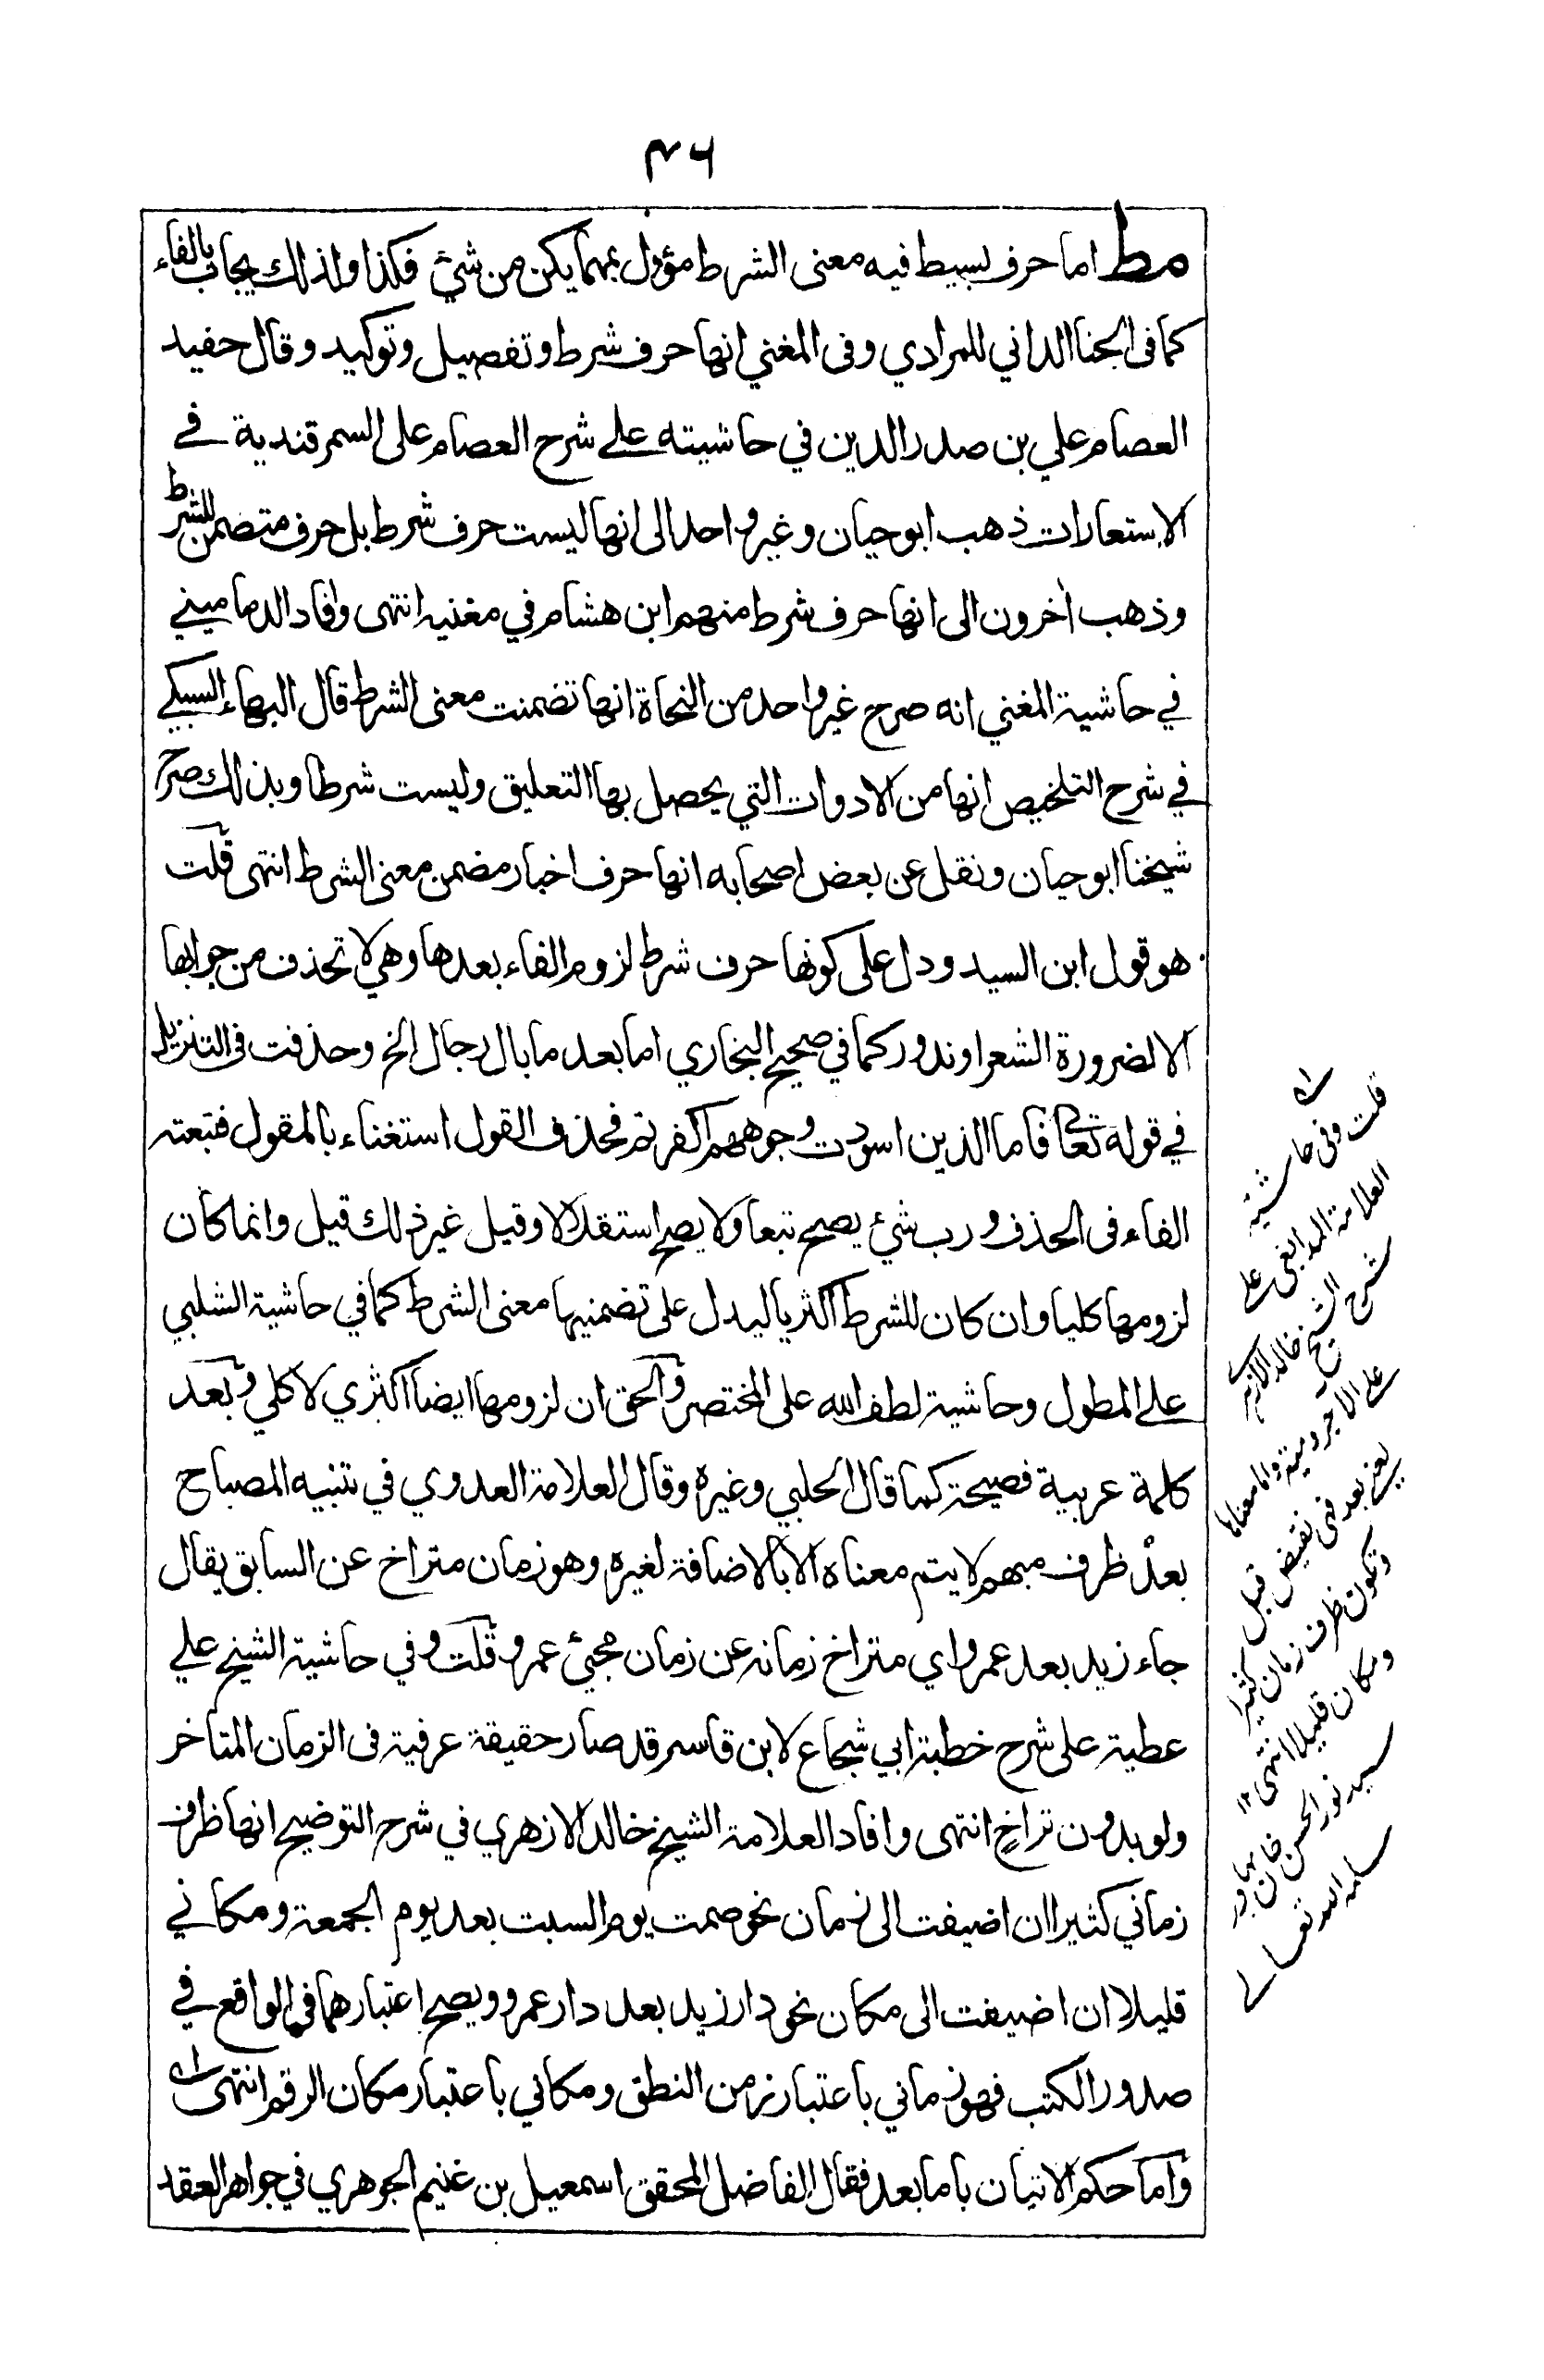 ۴۶
مط اما حرف بسيط فيه معنى الشرط مؤول بمهما يكن من شيء فكذا ولذلك يجاب بالفاء
كما في الجنا الداني للمرادي وفى المغني انها حرف شرط وتفصيل وتوكيد وقال حفيد
العصام علي بن صدر الدين في حاشيته على شرح العصام على السمرقندية في
الاستعارات ذهب ابو حيان وغير واحد الى انها ليست حرف شرط بل حرف متضمن للشرط
وذهب اخرون الى انها حرف شرط منهم ابن هشام في مغنيه انتهى وافاد الدماميني
في حاشية المغني انه صرح غير واحد من النحاة انها تضمنت معنى الشرط قال البهاء السبكي
في شرح التلخيص انها من الادوات التي يحصل بها التعليق وليست شرطا وبذلك صرح
شيخنا ابو حيان ونقل عن بعض اصحابه انها حرف اخبار مضمن معنى الشرط انتهى قلت
هو قول ابن السيد ودل على كونها حرف شرط لزوم الفاء بعدها وهي لا تحذف من جوابها
الا لضرورة الشعر او ندور كما في صحيح البخاري اما بعد ما بال رجال الخ وحذفت فى التنزيل
في قوله تعالى فاما الذين اسودت وجوههم اكفرتم فحذف القول استغناء بالمقول فتبعته
الفاء فى الحذف ورب شيء يصح تبعا ولا يصح استقلالا وقيل غير ذلك قيل وانما كان
لزومها كليا وان كان للشرط اكثريا ليدل على تضمنها معنى الشرط كما في حاشية الشلبي
على المطول وحاشية لطف الله على المختصر والحق ان لزومها ايضا اكثري لا كلي وبعد
كلمة عربية فصيحة كما قال الحلبي وغيره وقال العلامة العدوي في تنبيه المصباح
بعد ظرف مبهم لا يتم معناه الا بالاضافة لغيره وهو زمان متراخ عن السابق يقال
جاء زيد بعد عمرو اي متراخ زمانه عن زمان مجيئ عمرو قلت وفي حاشية الشيخ علي
عطية على شرح خطبة ابي شجاع لابن قاسم قد صار حقيقة عرفية فى الزمان المتاخر
ولو بدون تراخ انتهى وافاد العلامة الشيخ خالد الازهري في شرح التوضيح انها ظرف
زماني كثيرا ان اضيفت الى زمان نحو صمت يوم السبت بعد يوم الجمعة ومكاني
قليلا ان اضيفت الى مكان نحو دار زيد بعد دار عمرو ويصح اعتبارهما فى الواقع في
صدور الكتب فهو زماني باعتبار زمن النطق ومكاني باعتبار مكان الرقم انتهى له
واما حكم الاتيان باما بعد فقال الفاضل المحقق اسمعيل بن غنيم الجوهري في جواهر العقد
له
قلت وفى حاشية
العلامة المدابغى على
شرح الشيخ خالد الازهري
على الاجرومية واما معناها
يعني بعد فهى نقيض قبل
وتكون ظرف زمان كثيرا
ومكان قليلا انتهى ١٢
سيد نور الحسن خان بهادر
سلمه الله تعالى